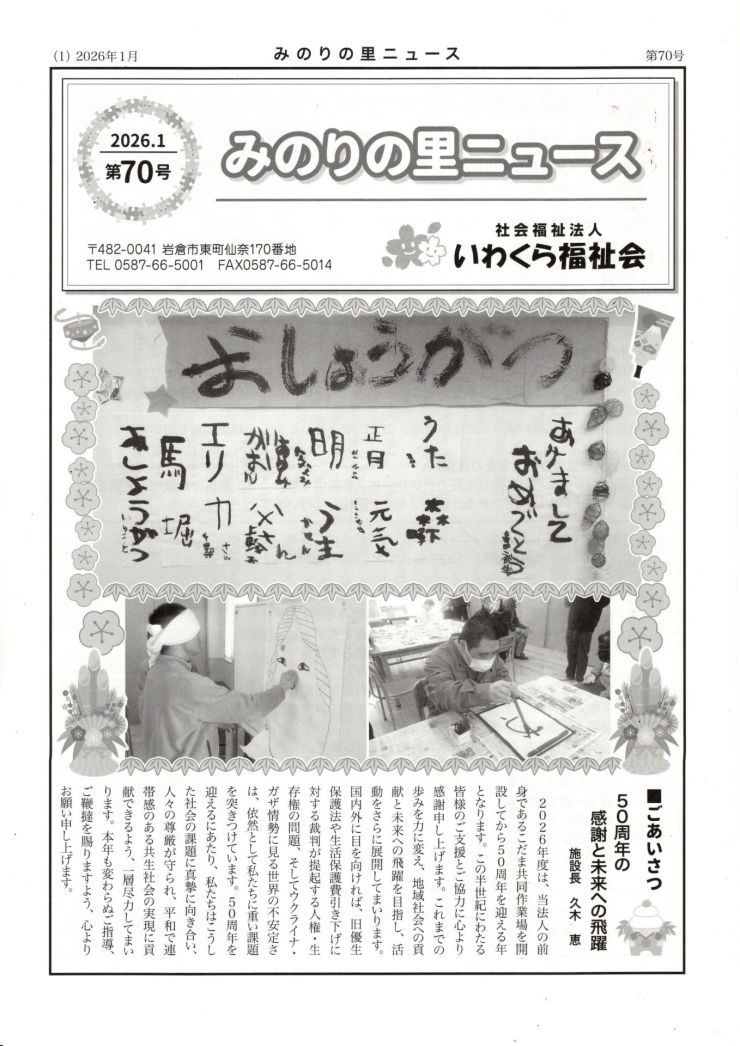 (1) 2026年1月
みのりの里ニュース
第70号
2026.1
第70号
みのりの里ニュース
〒482-0041 岩倉市東町仙奈170番地
TEL 0587-66-5001 FAX0587-66-5014
社会福祉法人
いわくら福祉会
おしょうがつ
あけまして
おめでとう
うた
森
正月
元気
明
うま
父さん
エリカ
馬
堀
おしょうがつ
■ごあいさつ
50周年の
感謝と未来への飛躍
施設長 久木 恵
2026年度は、当法人の前
身であるこだま共同作業場を開
設してから50周年を迎える年
となります。この半世紀にわたる
皆様のご支援とご協力に心より
感謝申し上げます。これまでの
歩みを力に変え、地域社会への貢
献と未来への飛躍を目指し、活
動をさらに展開してまいります。
国内外に目を向ければ、旧優生
保護法や生活保護費引き下げに
対する裁判が提起する人権・生
存権の問題、そしてウクライナ・
ガザ情勢に見る世界の不安定さ
は、依然として私たちに重い課題
を突きつけています。50周年を
迎えるにあたり、私たちはこうし
た社会の課題に真摯に向き合い、
人々の尊厳が守られ、平和で連
帯感のある共生社会の実現に貢
献できるよう、一層尽力してまい
ります。本年も変わらぬご指導、
ご鞭撻を賜りますよう、心より
お願い申し上げます。